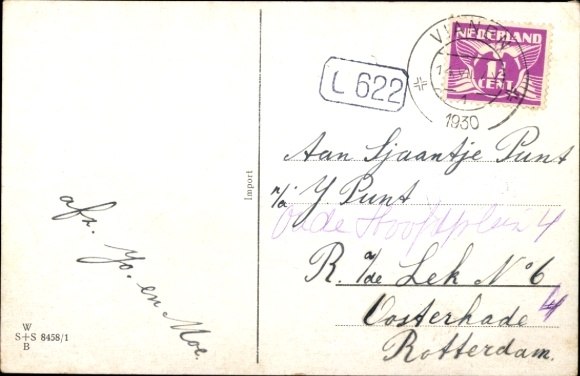 afz. Yo. en Moe.
W
S+S 8458/1
B
Import
L 622
NEDERLAND
1½
CENT
VIANEN
1930
Aan Sjaantje Punt
p/a J. Punt
Oude Hoofdplein 4
R. a/de Lek No 6
4
Oosterkade
Rotterdam.